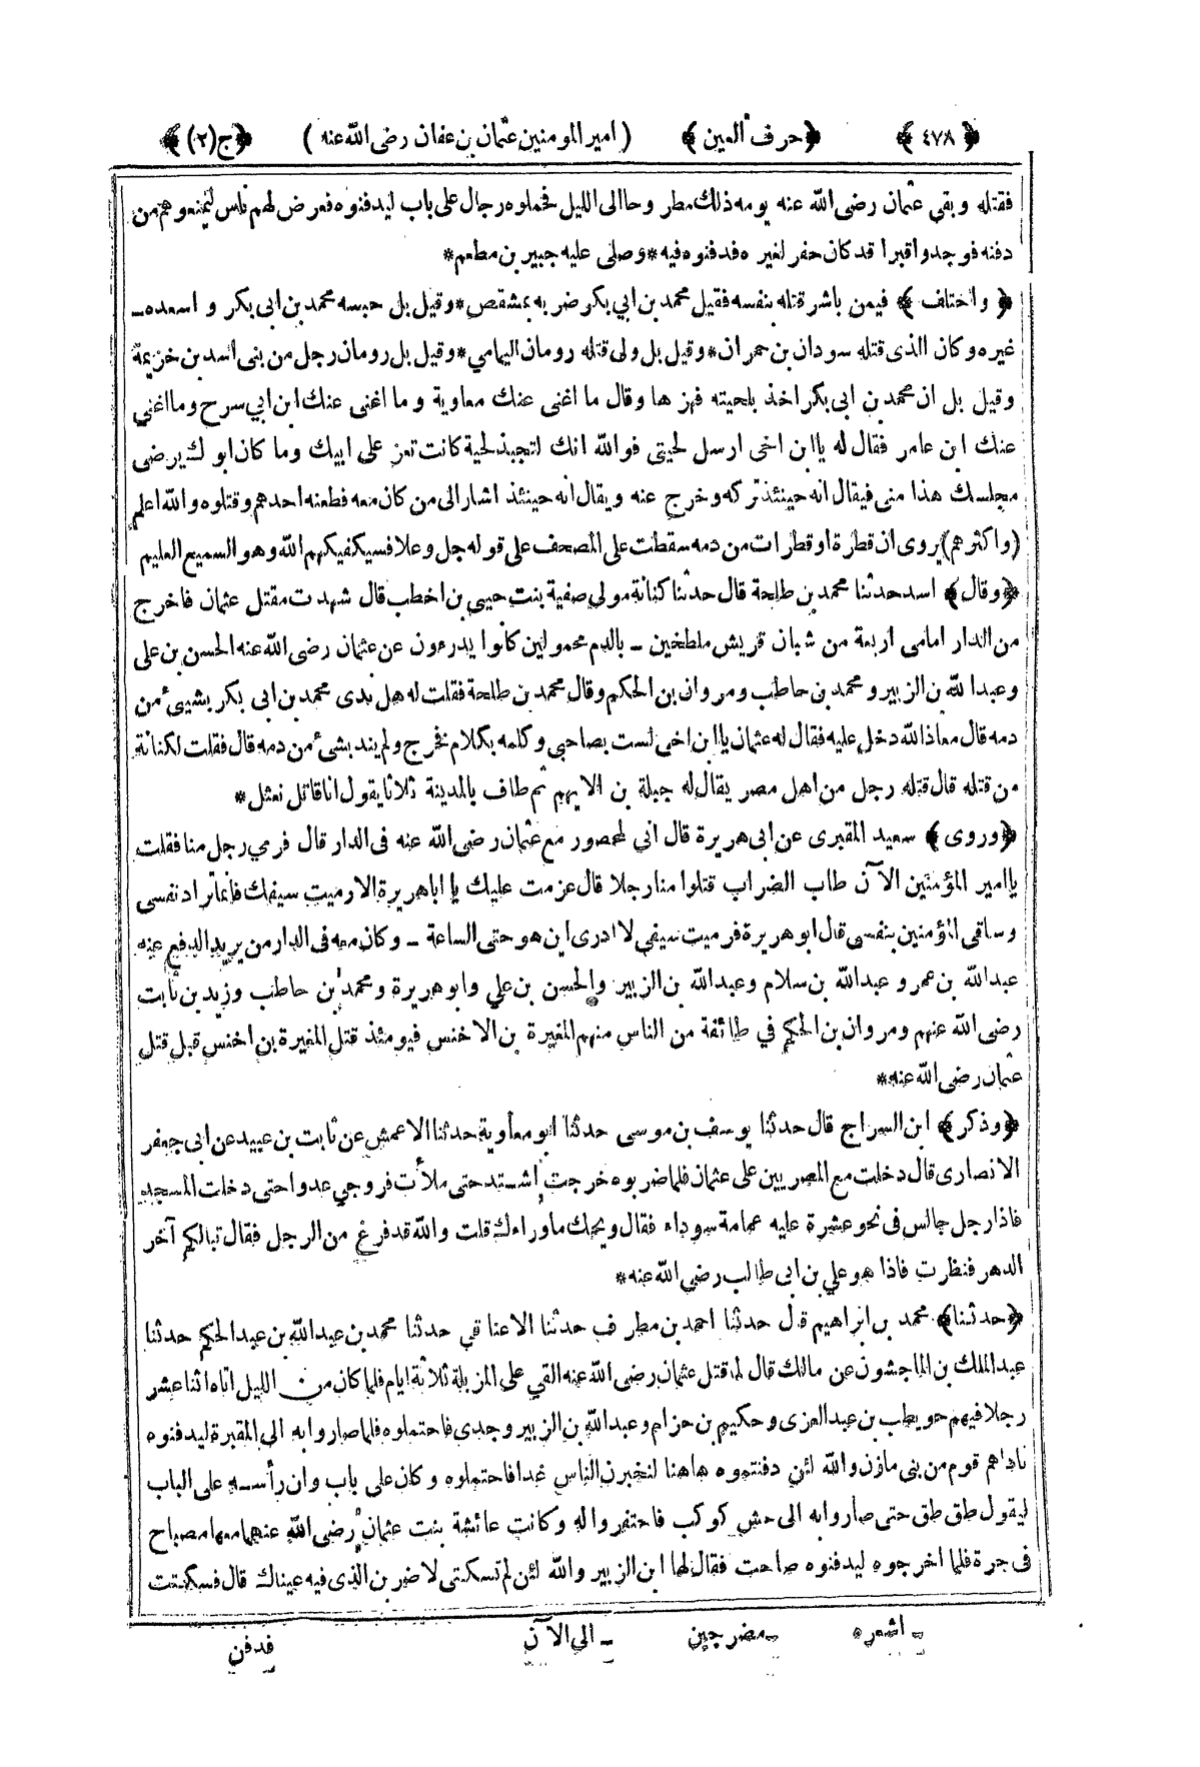 ﴿٤٧٨﴾ ﴿حرف العين﴾ (امير المومنين عثمان بن عفان رضى الله عنه) ﴿ج(٢)﴾
فقتله وبقي عثمان رضى الله عنه يومه ذلك مطروحا الى الليل فحملوه رجال على باب ليدفنوه فعرض لهم ناس ليمنعوهم من
دفنه فوجدوا قبرا قد كان حفر لغيره فدفنوه فيه * وصلى عليه جبير بن مطعم *
﴿واختلف﴾ فيمن باشر قتله بنفسه فقيل محمد بن ابي بكر ضربه بمشقص * وقيل بل حبسه محمد بن ابى بكر و اسعده ـ
غيره وكان الذى قتله سودان بن حمران * وقيل بل ولى قتله رومان اليمامي * وقيل بل رومان رجل من بنى اسد بن خزيمة
وقيل بل ان محمد بن ابى بكر اخذ بلحيته فهزها وقال ما اغنى عنك معاوية وما اغنى عنك ابن ابي سرح وما اغنى
عنك ابن عامر فقال له يا ابن اخى ارسل لحيتى فوالله انك لتجبذ لحية كانت تعز على ابيك وما كان ابوك يرضى
مجلسك هذا منى فيقال انه حينئذ تركه وخرج عنه ويقال انه حينئذ اشار الى من كان معه فطعنه احدهم وقتلوه والله اعلم
(واكثرهم) يروى ان قطرة او قطرات من دمه سقطت على المصحف على قوله جل وعلا فسيكفيكهم الله وهو السميع العليم
﴿وقال﴾ اسد حدثنا محمد بن طلحة قال حدثنا كنانة مولى صفية بنت حيي بن اخطب قال شهدت مقتل عثمان فاخرج
من الدار امامى اربعة من شبان قريش ملطخين ـ بالدم محمولين كانوا يدرءون عن عثمان رضى الله عنه الحسن بن على
وعبدالله بن الزبير و محمد بن حاطب ومروان بن الحكم وقال محمد بن طلحة فقلت له هل ندى محمد بن ابى بكر بشيئ من
دمه قال معاذ الله دخل عليه فقال له عثمان يا ابن اخى لست بصاحبي وكلمه بكلام فخرج ولم يند بشئ من دمه قال فقلت لكنانة
من قتله قال قتله رجل من اهل مصر يقال له جبلة بن الايهم ثم طاف بالمدينة ثلاثا يقول انا قاتل نعثل *
﴿وروى﴾ سعيد المقبرى عن ابى هريرة قال انى لمحصور مع عثمان رضى الله عنه فى الدار قال فرمي رجل منا فقلت
يا امير المؤمنين الآن طاب الضراب قتلوا منا رجلا قال عزمت عليك يا ابا هريرة الا رميت سيفك فانما تراد نفسى
وساقى المؤمنين بنفسى قال ابو هريرة فرميت سيفي لا ادرى اين هو حتى الساعة ـ وكان معه فى الدار من يريد الدفع عنه
عبدالله بن عمر و عبدالله بن سلام وعبدالله بن الزبير والحسن بن علي وابو هريرة ومحمد بن حاطب وزيد بن ثابت
رضى الله عنهم ومروان بن الحكم في طائفة من الناس منهم المغيرة بن الاخنس فيومئذ قتل المغيرة بن اخنس قبل قتل
عثمان رضى الله عنه *
﴿وذكر﴾ ابن السراج قال حدثنا يوسف بن موسى حدثنا ابو معاوية حدثنا الاعمش عن ثابت بن عبيد عن ابى جعفر
الانصارى قال دخلت مع المصريين على عثمان فلما ضربوه خرجت اشتد حتى ملأت فروجي عدوا حتى دخلت المسجد
فاذا رجل جالس فى نحو عشرة عليه عمامة سوداء فقال ويحك ما وراءك قلت والله قد فرغ من الرجل فقال تبا لكم آخر
الدهر فنظرت فاذا هو علي بن ابى طالب رضى الله عنه *
﴿حدثنا﴾ محمد بن ابراهيم قال حدثنا احمد بن مطرف حدثنا الاعناقي حدثنا محمد بن عبدالله بن عبدالحكم حدثنا
عبدالملك بن الماجشون عن مالك قال لما قتل عثمان رضى الله عنه القي على المزبلة ثلاثة ايام فلما كان من الليل اتاه اثنا عشر
رجلا فيهم حويطب بن عبدالعزى وحكيم بن حزام وعبدالله بن الزبير وجدى فاحتملوه فلما صاروا به الى المقبرة ليدفنوه
ناداهم قوم من بنى مازن والله لئن دفنتموه هاهنا لنخبرن الناس غدا فاحتملوه وكان على باب وان رأسه على الباب
ليقول طق طق حتى صاروا به الى حش كوكب فاحتفروا له وكانت عائشة بنت عثمان رضى الله عنهما معها مصباح
فى جرة فلما اخرجوه ليدفنوه صاحت فقال لها ابن الزبير والله لئن لم تسكتى لاضربن الذى فيه عيناك قال فسكتت
ـ اشعره ـ مضرجين ـ الى الآن فدفن